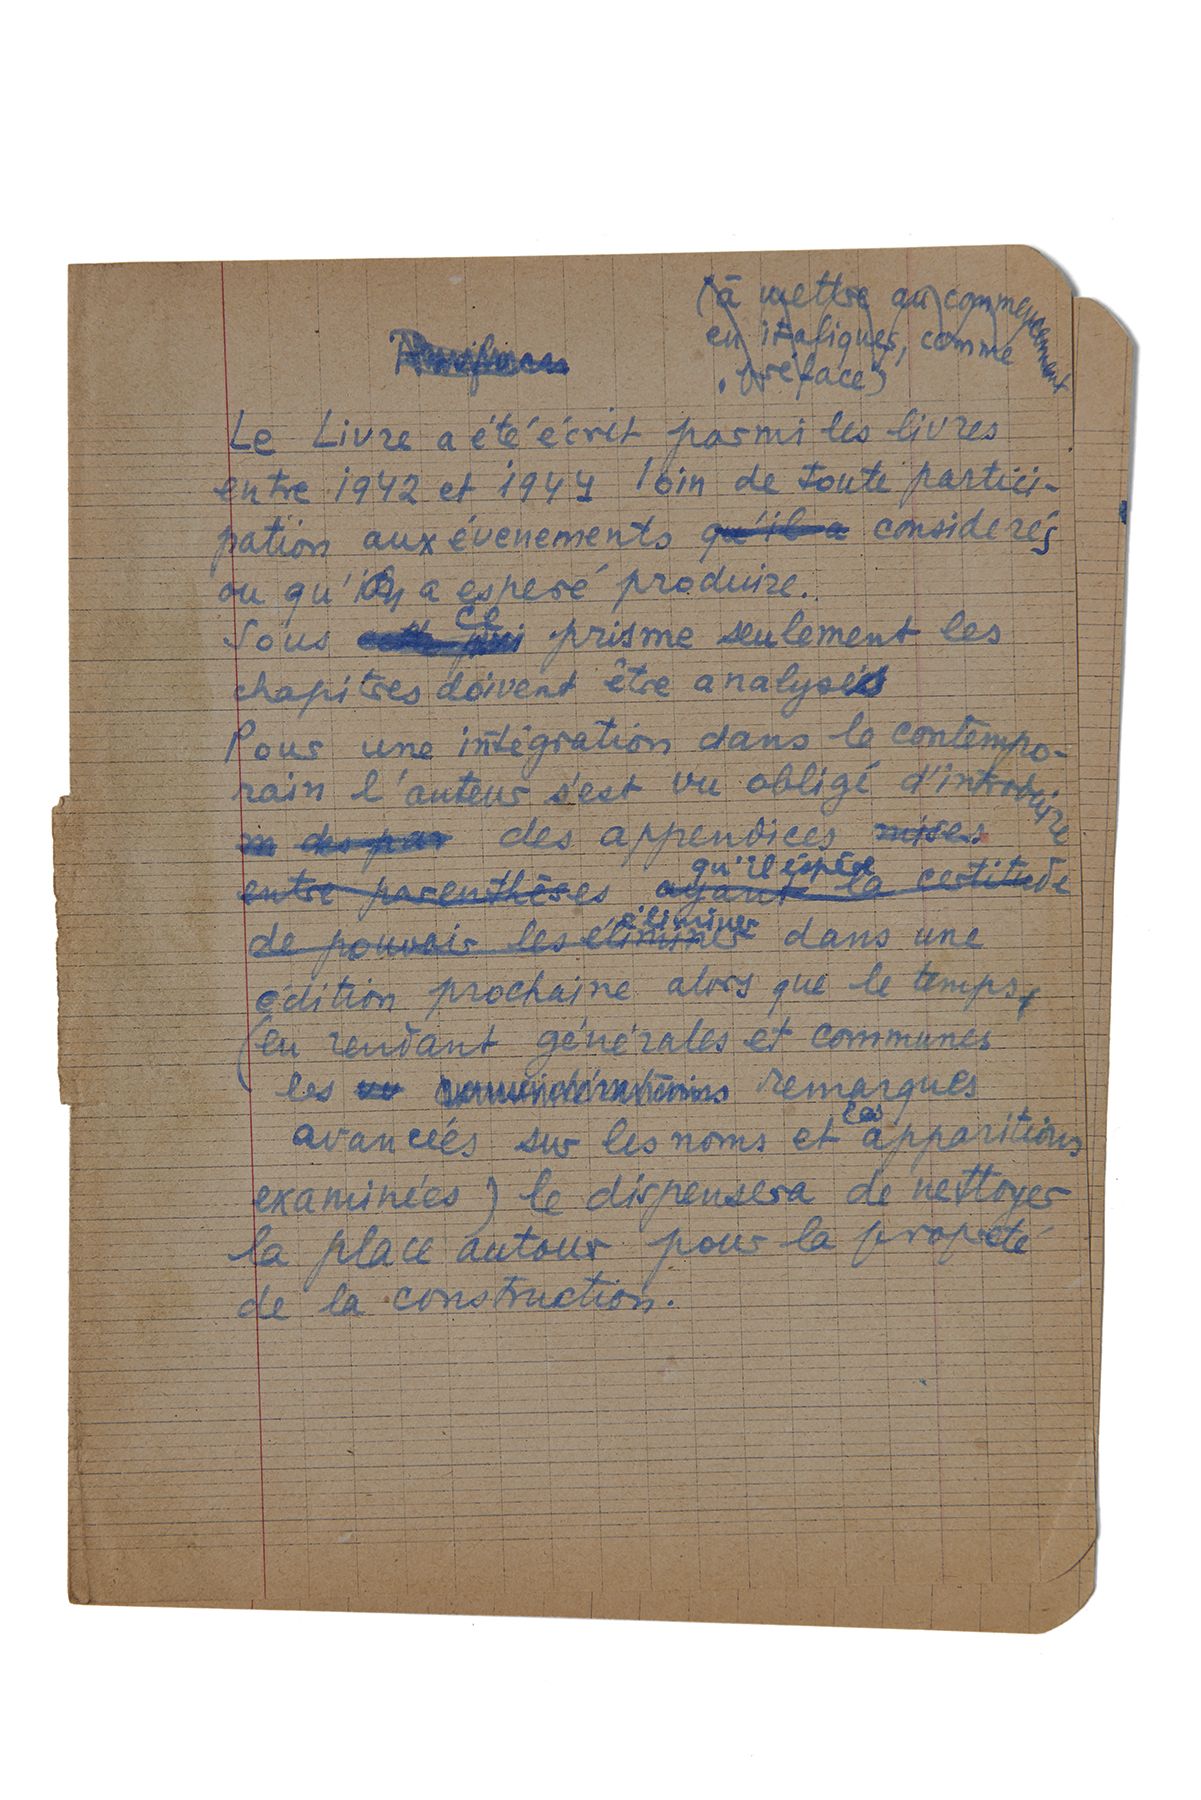 (à mettre au commencement
en italiques, comme
préface)
Le Livre a été écrit parmi les livres
entre 1942 et 1944 loin de toute partici-
pation aux évenements qu'il a considerés
ou qu'il a esperé produire.
Sous ce prisme seulement les
chapitres doivent être analysés
Pour une intégration dans le contempo-
rain l'auteur s'est vu obligé d'introduire
des par des appendices mises
qu'il éspère
entre parenthèses ayant la certitude
éliminer
de pouvoir les éliminer dans une
édition prochaine alors que le temps,
(en rendant générales et communes
les remarques
les
avancées sur les noms et apparitions
examinées) le dispensera de nettoyer
la place autour pour la propreté
de la construction.